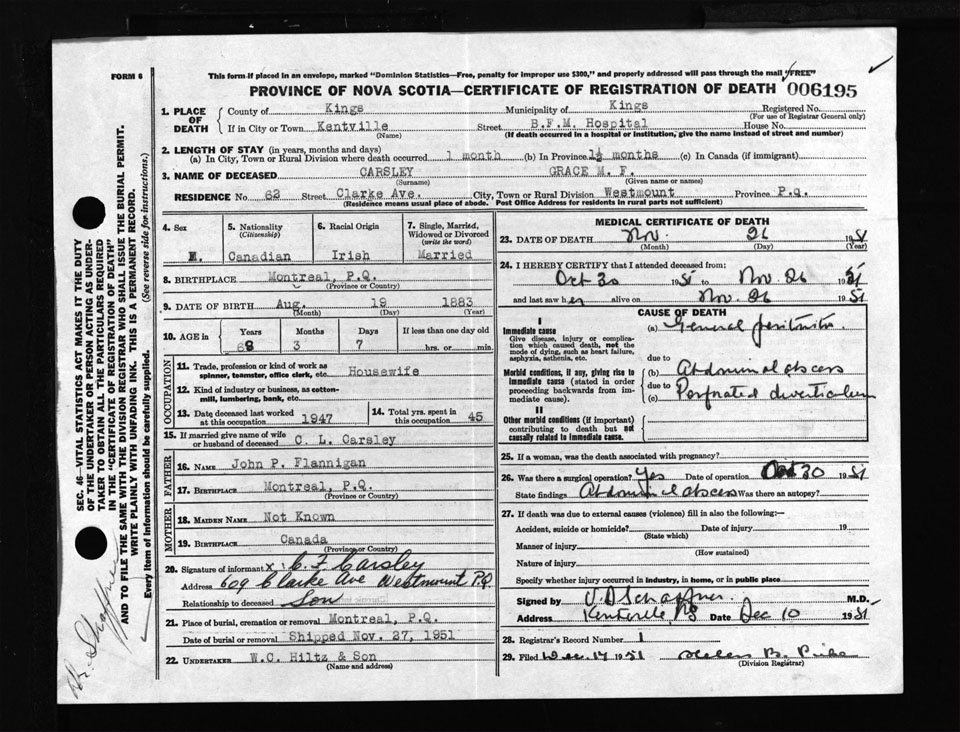 FORM 6
This form if placed in an envelope, marked "Dominion Statistics—Free, penalty for improper use $300," and properly addressed will pass through the mail "FREE"
PROVINCE OF NOVA SCOTIA—CERTIFICATE OF REGISTRATION OF DEATH 006195
1. PLACE OF DEATH
County of Kings Municipality of Kings Registered No.
(For use of Registrar General only)
If in City or Town Kentville Street B.F.M. Hospital House No.
(Name) (If death occurred in a hospital or institution, give the name instead of street and number)
2. LENGTH OF STAY (in years, months and days)
(a) In City, Town or Rural Division where death occurred 1 month (b) In Province 1½ months (c) In Canada (if immigrant)
3. NAME OF DECEASED CARSLEY GRACE M. F.
(Surname) (Given name or names)
RESIDENCE No 62 Street Clarke Ave. City, Town or Rural Division Westmount Province P.Q.
(Residence means usual place of abode. Post Office Address for residents in rural parts not sufficient)
4. Sex F.
5. Nationality (Citizenship) Canadian
6. Racial Origin Irish
7. Single, Married, Widowed or Divorced (write the word) Married
8. BIRTHPLACE Montreal, P.Q.
(Province or Country)
9. DATE OF BIRTH Aug. 19 1883
(Month) (Day) (Year)
10. AGE in Years Months Days If less than one day old
68 3 7 hrs. or min.
OCCUPATION
11. Trade, profession or kind of work as spinner, teamster, office clerk, etc. Housewife
12. Kind of industry or business, as cotton-mill, lumbering, bank, etc.
13. Date deceased last worked at this occupation 1947
14. Total yrs. spent in this occupation 45
15. If married give name of wife or husband of deceased C. L. Carsley
FATHER
16. NAME John P. Flannigan
17. BIRTHPLACE Montreal, P.Q.
(Province or Country)
MOTHER
18. MAIDEN NAME Not Known
19. BIRTHPLACE Canada
(Province or Country)
20. Signature of informant X C. F. Carsley
Address 609 Clarke Ave Westmount P.Q.
Relationship to deceased Son
21. Place of burial, cremation or removal Montreal, P.Q.
Date of burial or removal Shipped Nov. 27, 1951
22. UNDERTAKER W.C. Hiltz & Son
(Name and address)
MEDICAL CERTIFICATE OF DEATH
23. DATE OF DEATH Nov. 26 1951
(Month) (Day) (Year)
24. I HEREBY CERTIFY that I attended deceased from:
Oct 30 1951 to Nov. 26 1951
and last saw her alive on Nov. 26 1951
CAUSE OF DEATH
I
Immediate cause
Give disease, injury or complication which caused death, not the mode of dying, such as heart failure, asphyxia, asthenia, etc.
(a) General peritonitis
due to
Morbid conditions, if any, giving rise to immediate cause (stated in order proceeding backwards from immediate cause).
(b) Abdominal abcess
due to
(c) Perforated diverticulum
II
Other morbid conditions (if important) contributing to death but not causally related to immediate cause.
25. If a woman, was the death associated with pregnancy?
26. Was there a surgical operation? Yes Date of operation Oct 30 1951
State findings Abdominal abcess Was there an autopsy?
27. If death was due to external causes (violence) fill in also the following:—
Accident, suicide or homicide? Date of injury 19
(State which)
Manner of injury
(How sustained)
Nature of injury
Specify whether injury occurred in industry, in home, or in public place
Signed by V. D Schaffner. M.D.
Address Kentville NS Date Dec 10 1951
28. Registrar's Record Number 1
29. Filed Dec 17 1951 Helen B.
(Division Registrar)
SEC. 46—VITAL STATISTICS ACT MAKES IT THE DUTY
OF THE UNDERTAKER OR PERSON ACTING AS UNDER-
TAKER TO OBTAIN ALL THE PARTICULARS REQUIRED
IN THE "CERTIFICATE OF REGISTRATION OF DEATH"
AND TO FILE THE SAME WITH THE DIVISION REGISTRAR WHO SHALL ISSUE THE BURIAL PERMIT.
WRITE PLAINLY WITH UNFADING INK. THIS IS A PERMANENT RECORD.
Every item of information should be carefully supplied. (See reverse side for instructions.)
Dr. Shaffner